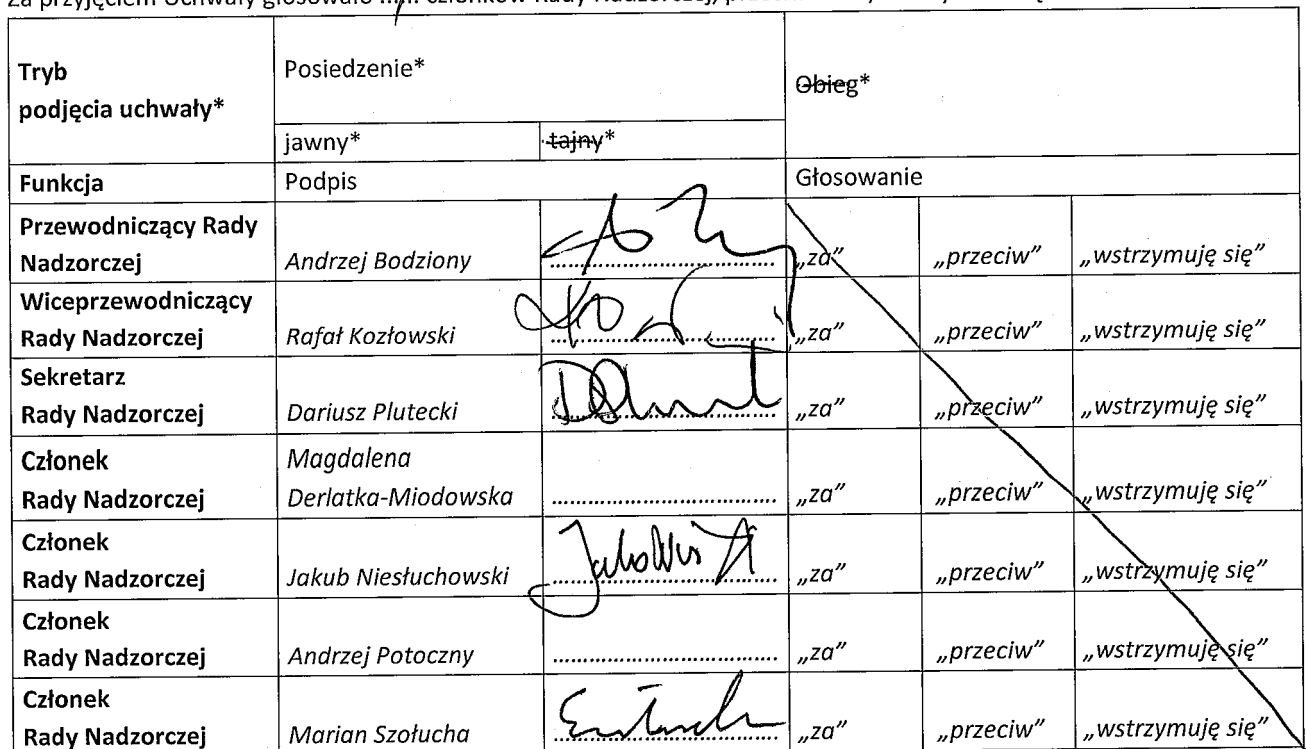 Za przyjęciem Uchwały głosowało ...... członków Rady Nadzorczej,
Tryb
podjęcia uchwały*
Posiedzenie*
Obieg*
jawny*
tajny*
Funkcja
Podpis
Głosowanie
Przewodniczący Rady
Nadzorczej
Andrzej Bodziony
„za” „przeciw” „wstrzymuję się”
Wiceprzewodniczący
Rady Nadzorczej
Rafał Kozłowski
„za” „przeciw” „wstrzymuję się”
Sekretarz
Rady Nadzorczej
Dariusz Plutecki
„za” „przeciw” „wstrzymuję się”
Członek
Rady Nadzorczej
Magdalena
Derlatka-Miodowska
„za” „przeciw” „wstrzymuję się”
Członek
Rady Nadzorczej
Jakub Niesłuchowski
„za” „przeciw” „wstrzymuję się”
Członek
Rady Nadzorczej
Andrzej Potoczny
„za” „przeciw” „wstrzymuję się”
Członek
Rady Nadzorczej
Marian Szołucha
„za” „przeciw” „wstrzymuję się”